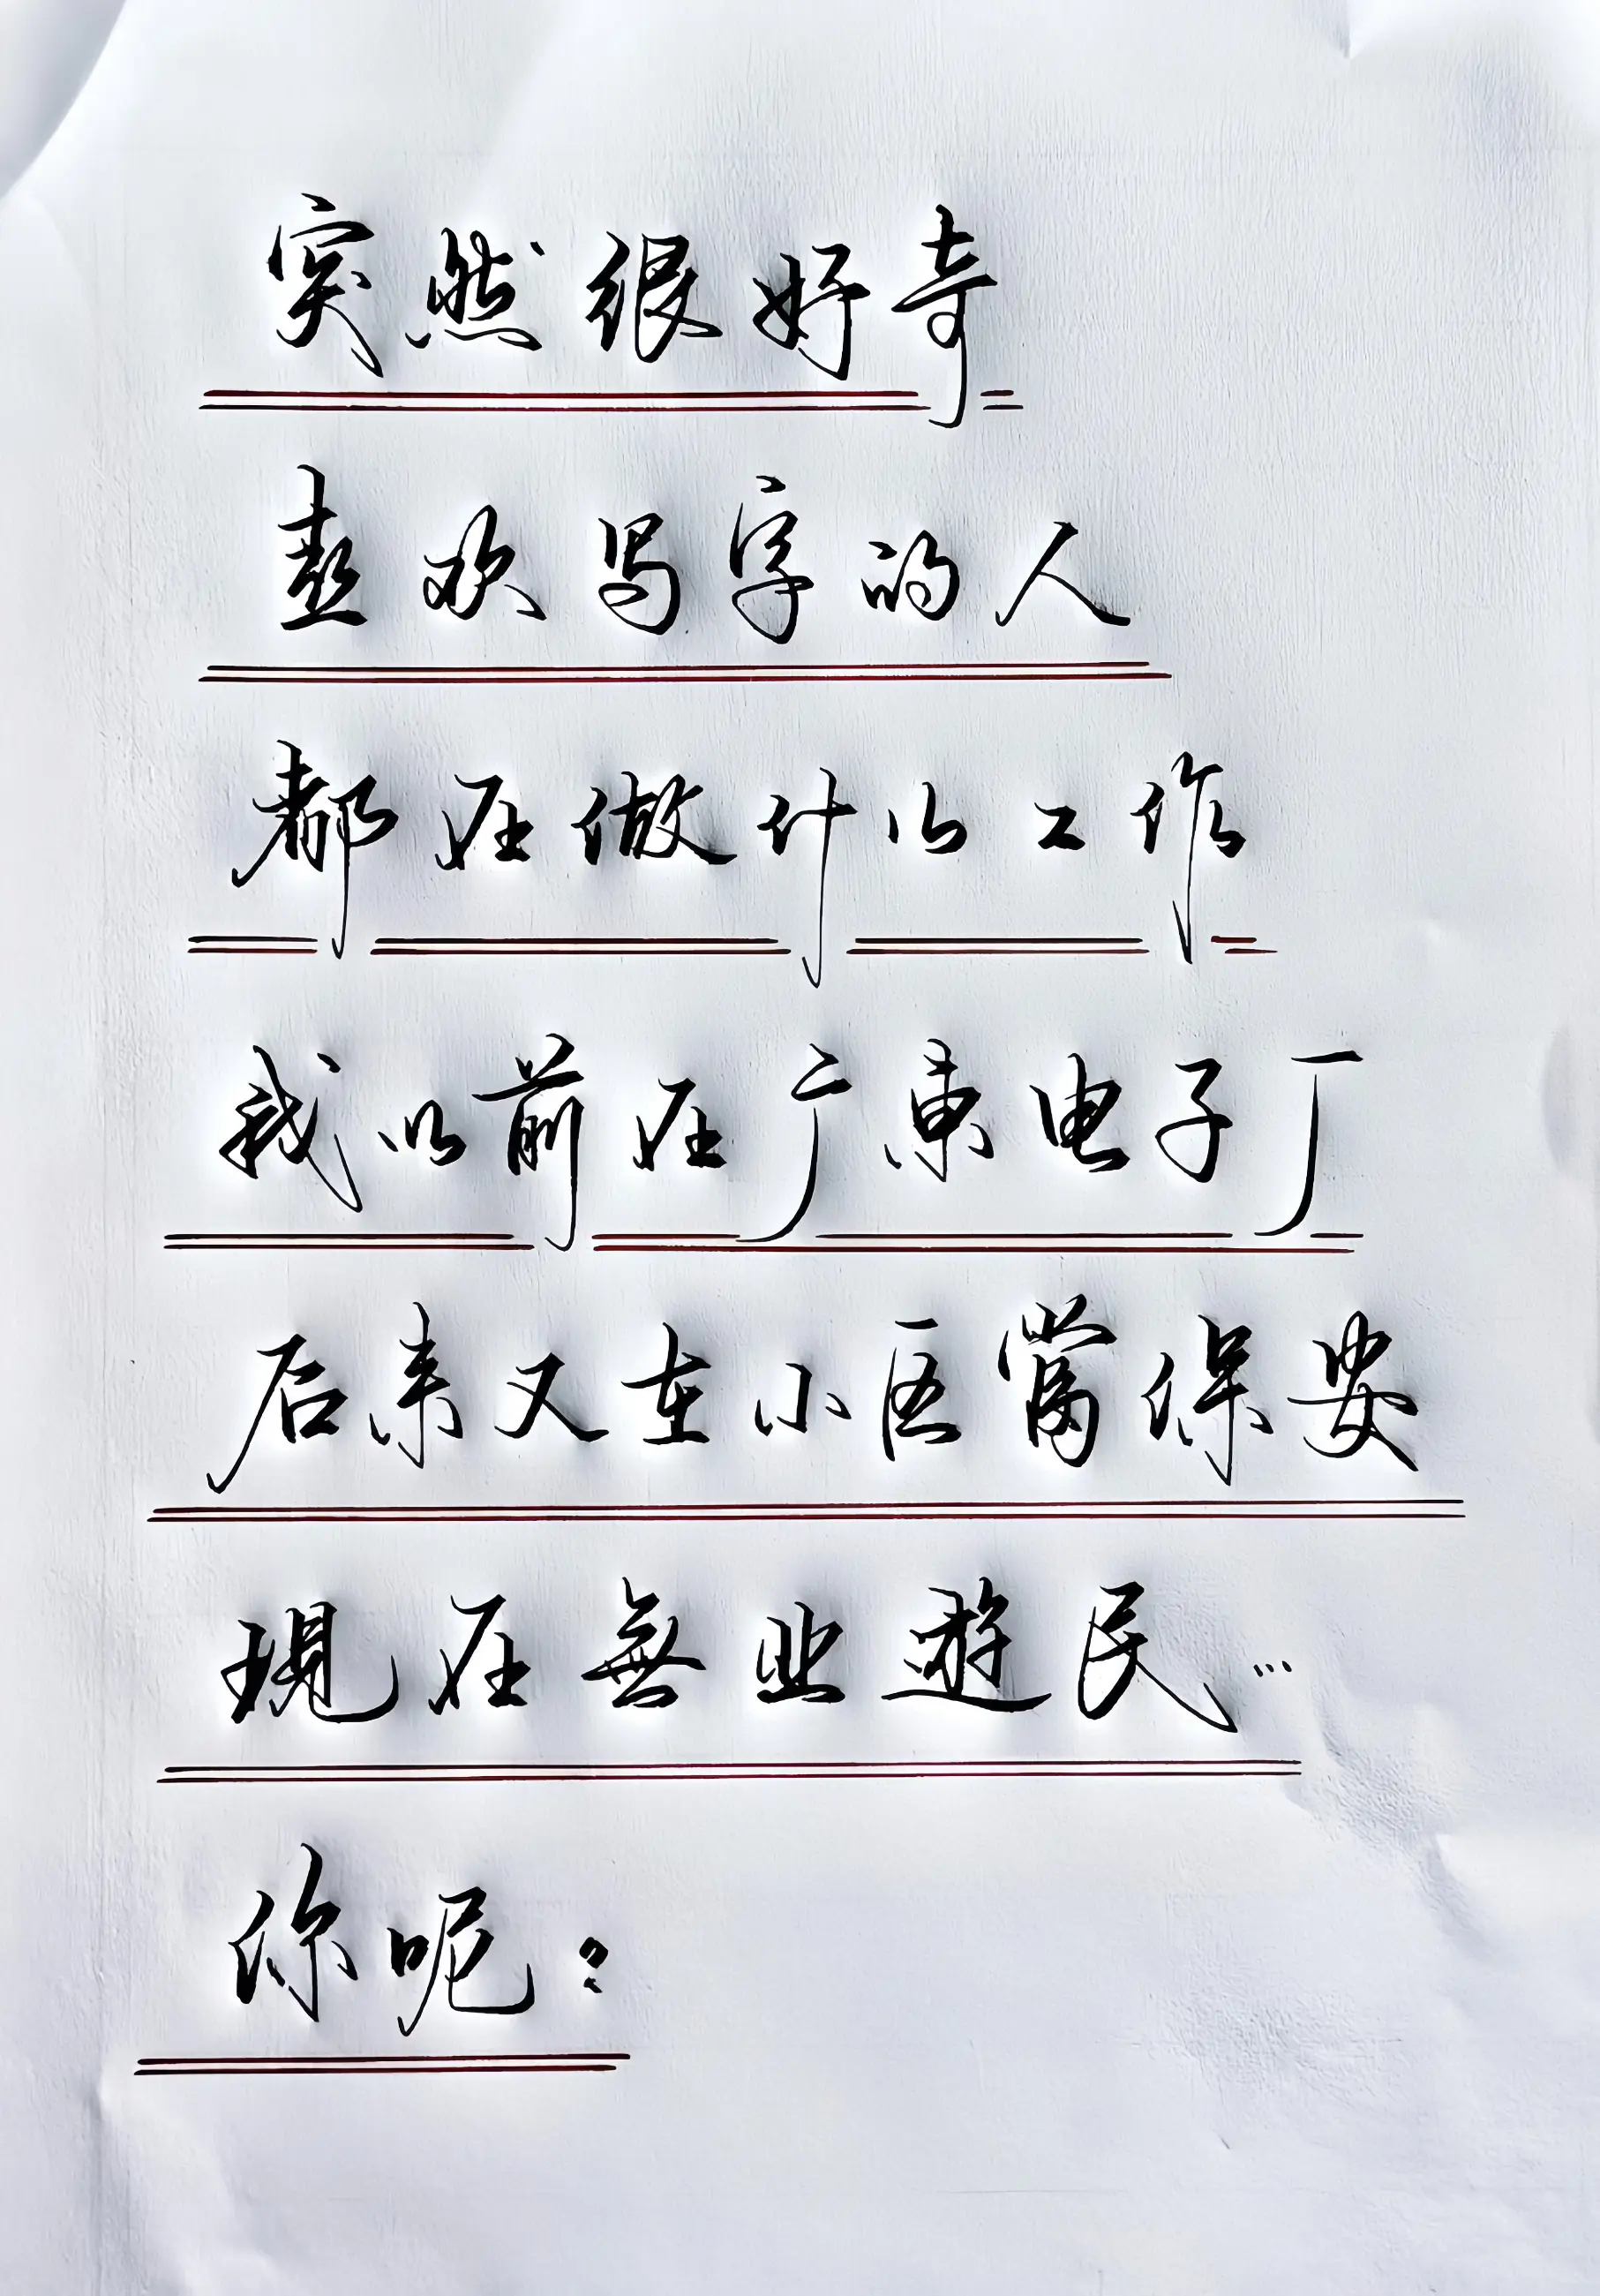 突然很好奇
喜欢写字的人
都在做什么工作
我以前在广東电子厂
后来又在小区當保安
現在無业遊民...
你呢?